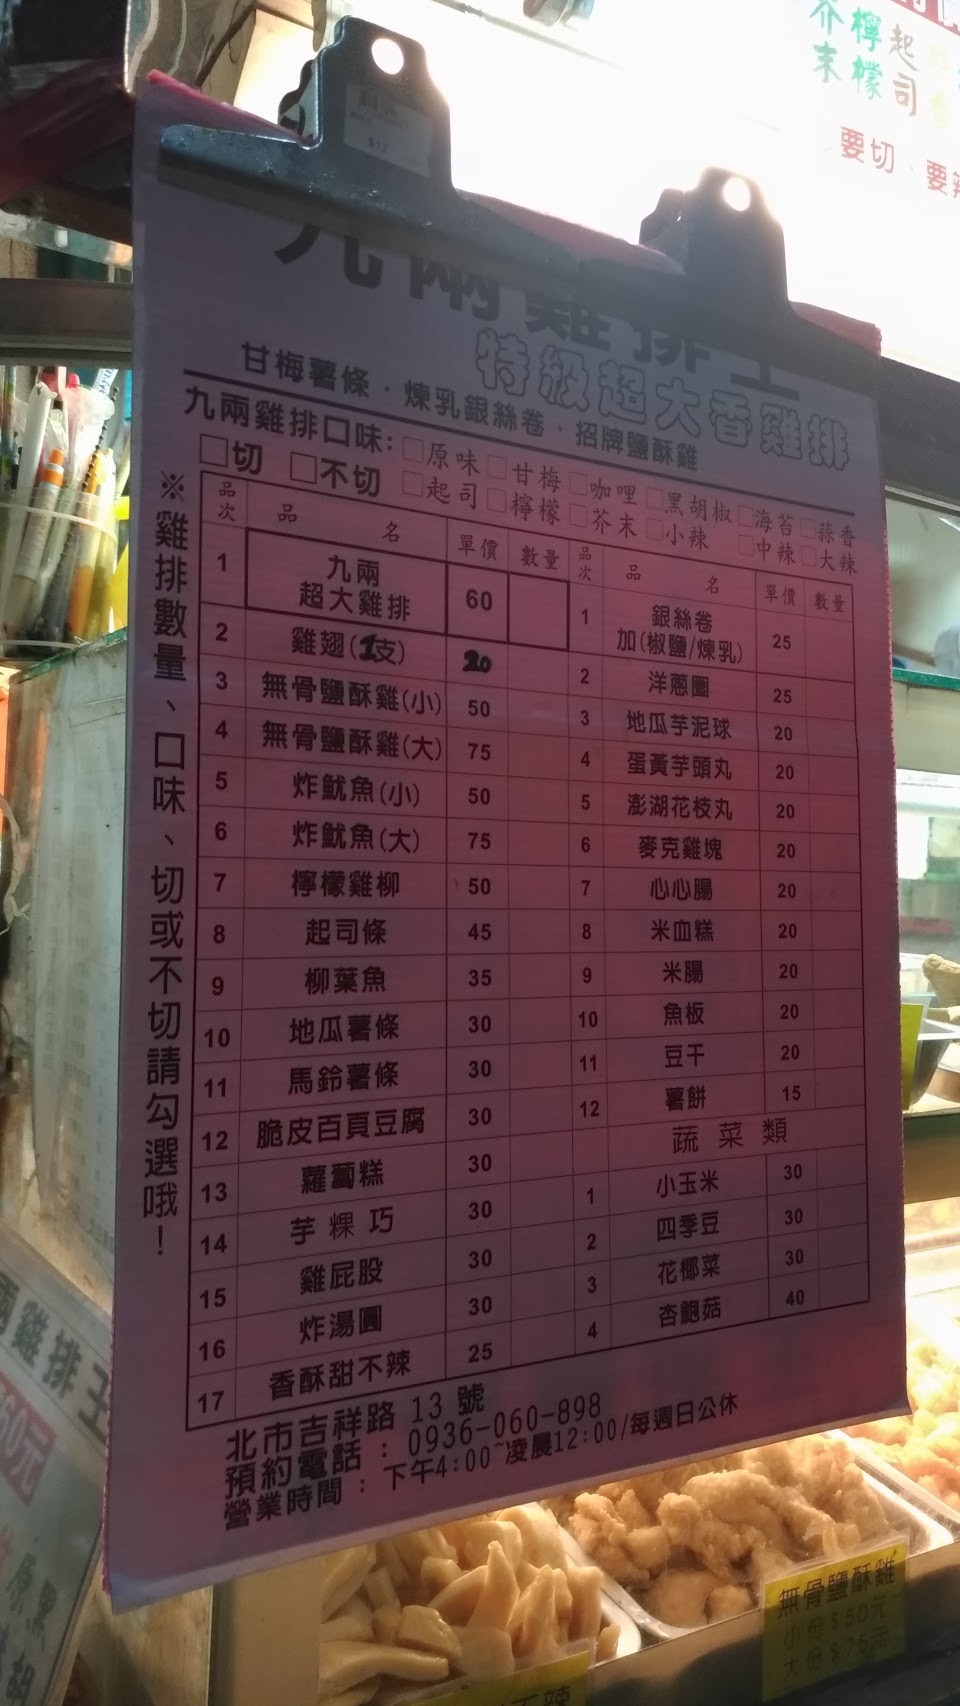 芥末 檸檬 起司
要切、要辣
$12
九兩雞排王
特級超大香雞排
甘梅薯條．煉乳銀絲卷．招牌鹽酥雞
九兩雞排口味：□原味□甘梅□咖哩□黑胡椒□海苔□蒜香
□切 □不切 □起司□檸檬□芥末□小辣 □中辣□大辣
※雞排數量、口味、切或不切請勾選哦！
品次 品名 單價 數量
1 九兩超大雞排 60
2 雞翅(1支) 20
3 無骨鹽酥雞(小) 50
4 無骨鹽酥雞(大) 75
5 炸魷魚(小) 50
6 炸魷魚(大) 75
7 檸檬雞柳 50
8 起司條 45
9 柳葉魚 35
10 地瓜薯條 30
11 馬鈴薯條 30
12 脆皮百頁豆腐 30
13 蘿蔔糕 30
14 芋粿巧 30
15 雞屁股 30
16 炸湯圓 30
17 香酥甜不辣 25
品次 品名 單價 數量
1 銀絲卷加(椒鹽/煉乳) 25
2 洋蔥圈 25
3 地瓜芋泥球 20
4 蛋黃芋頭丸 20
5 澎湖花枝丸 20
6 麥克雞塊 20
7 心心腸 20
8 米血糕 20
9 米腸 20
10 魚板 20
11 豆干 20
12 薯餅 15
蔬菜類
1 小玉米 30
2 四季豆 30
3 花椰菜 30
4 杏鮑菇 40
北市吉祥路 13 號
預約電話：0936-060-898
營業時間：下午4:00~凌晨12:00/每週日公休
兩雞排王
60元
無骨鹽酥雞
小份$50元
大份$75元
不辣